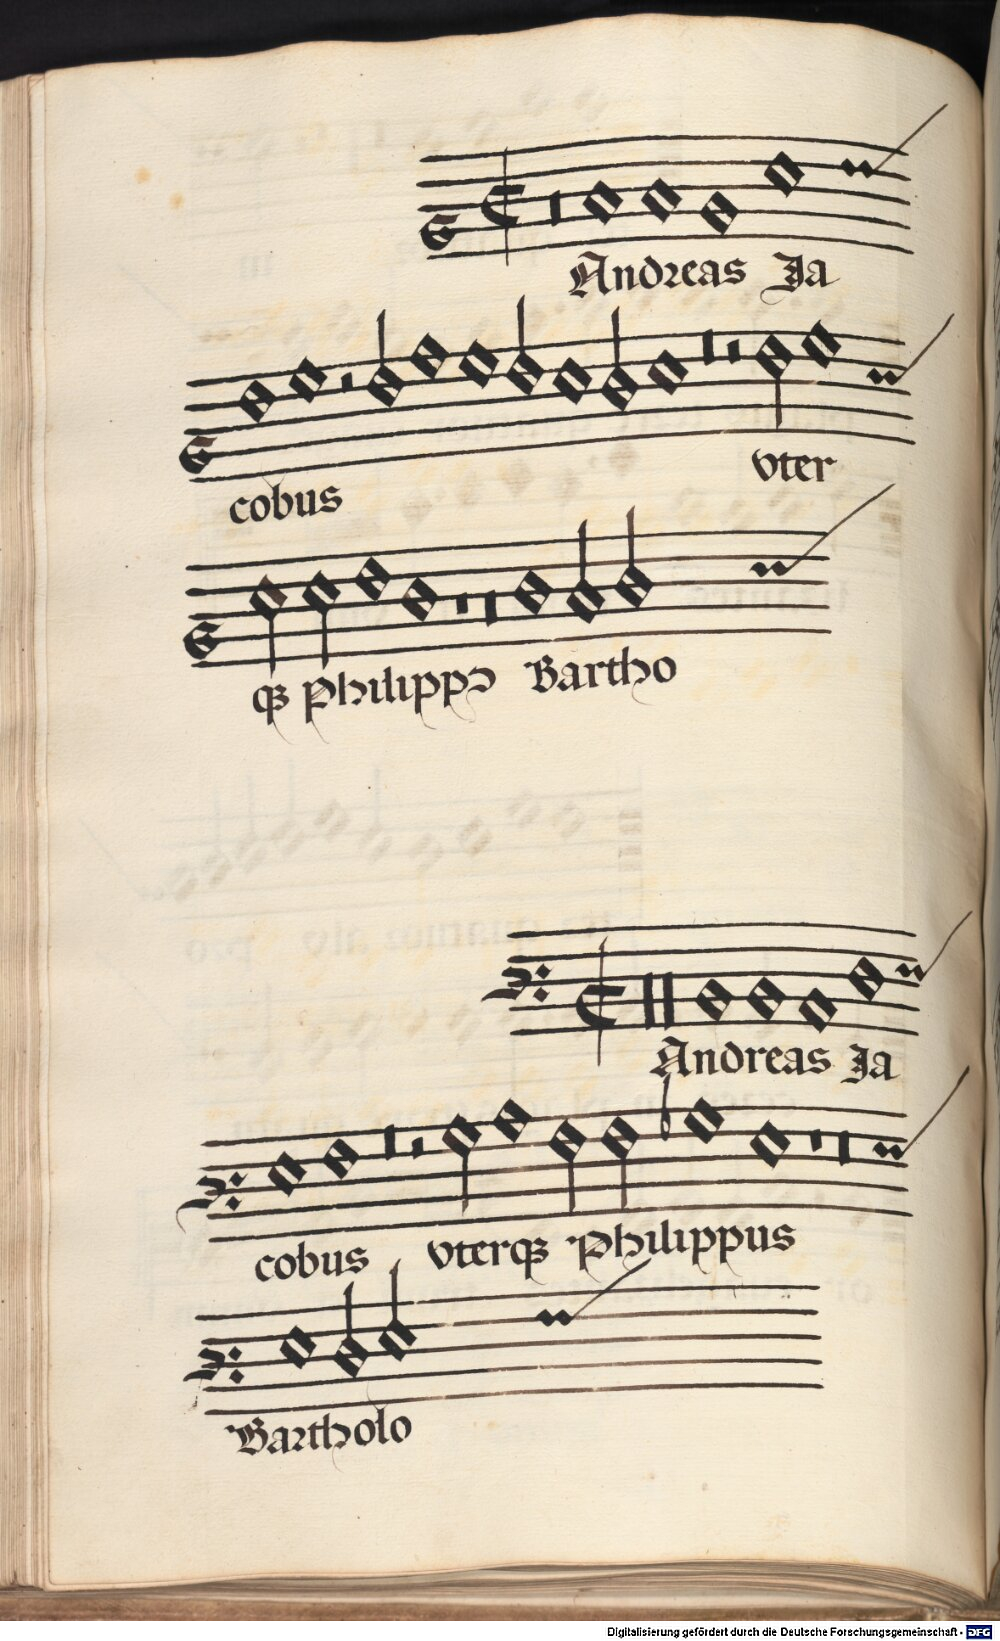 Andreas Ja
cobus vter
qȝ Philippꝰ Bartho
Andreas Ja
cobus vterqȝ Philippus
Bartholo
Digitalisierung gefördert durch die Deutsche Forschungsgemeinschaft - DFG